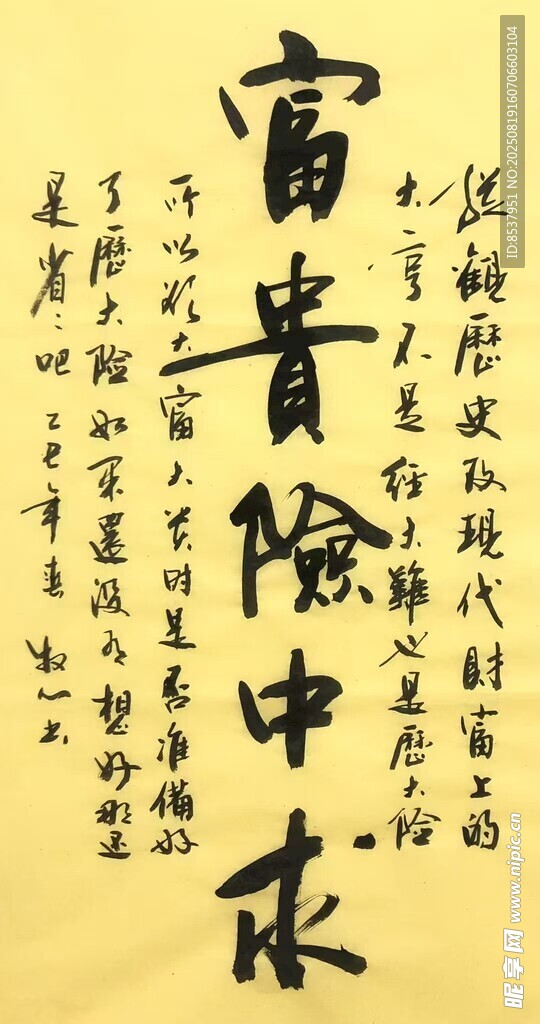 縱觀歷史及現代財富上的
大亨不是經大難必是歷大险
富貴險中求
所以欲大富大贵时是否准備好
了歷大险如果還没有想好那还
是省〻吧 乙巳年春 牧心书
ID:8537951 NO:20250819160706603104
昵享网 www.nipic.cn